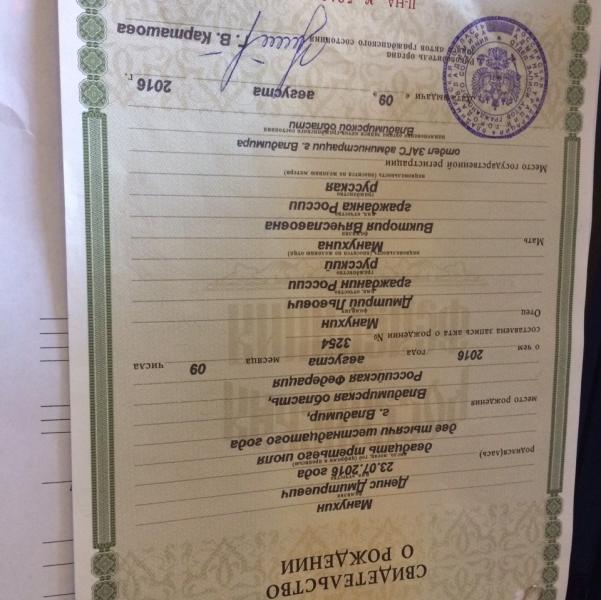 СВИДЕТЕЛЬСТВО
О РОЖДЕНИИ
Манухин
фамилия
Денис Дмитриевич
родился(лась) 23.07.2016 года
число, месяц, год (цифрами и прописью)
двадцать третьего июля
две тысячи шестнадцатого года
место рождения г. Владимир,
Владимирская область,
Российская Федерация
о чем 2016 года августа месяца 09 числа
составлена запись акта о рождении № 3254
Отец Манухин
фамилия
Дмитрий Львович
имя, отчество
гражданин России
гражданство
русский
национальность (вносится по желанию отца)
Мать Манухина
фамилия
Виктория Вячеславовна
имя, отчество
гражданка России
гражданство
русская
национальность (вносится по желанию матери)
Место государственной регистрации
отдел ЗАГС администрации г. Владимира
наименование органа записи актов гражданского состояния
Владимирской области
Дата выдачи « 09 » августа 2016 г.
Руководитель органа
записи актов гражданского состояния Г. В. Карташова